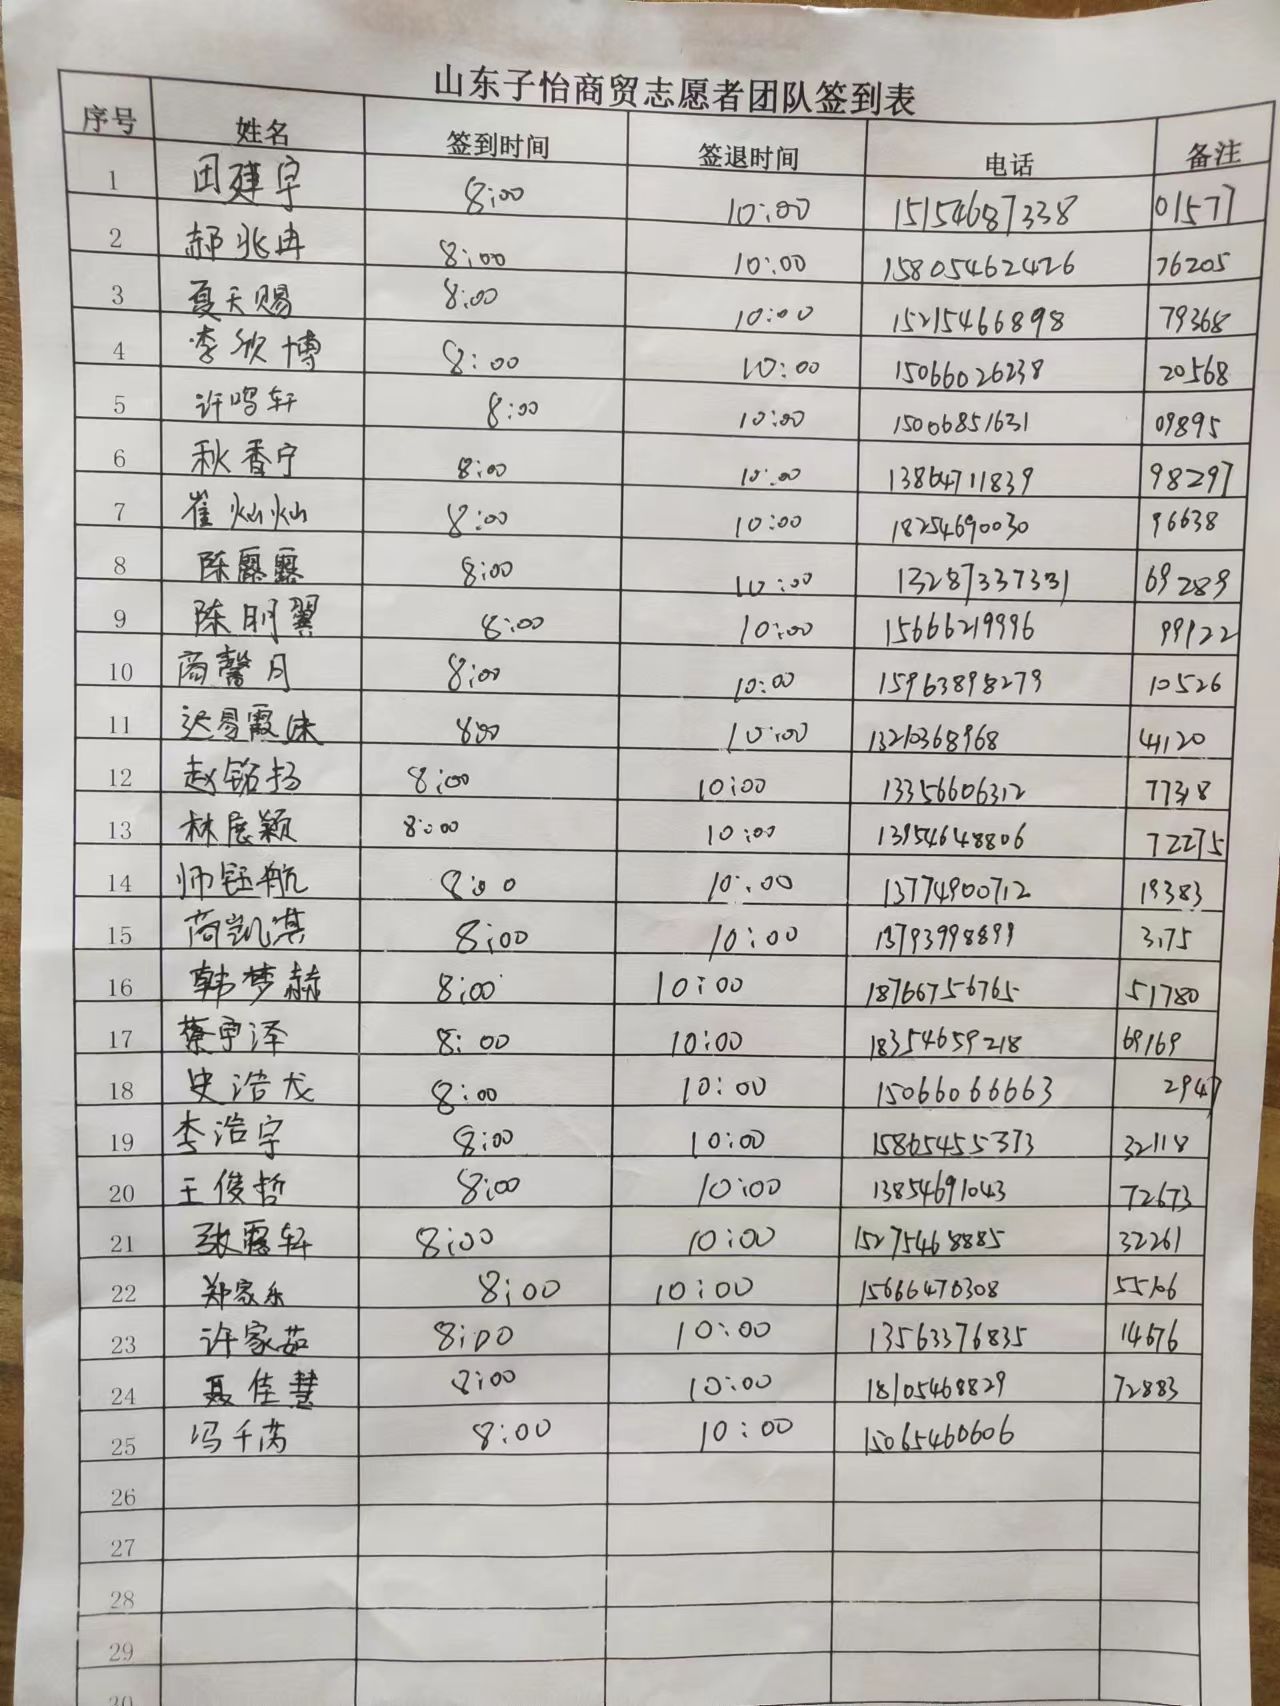 山东子怡商贸志愿者团队签到表
序号 姓名 签到时间 签退时间 电话 备注
1 田建宇 8:00 10:00 15154687338 01577
2 郝兆冉 8:00 10:00 15805462426 76205
3 夏天赐 8:00 10:00 15215466898 79368
4 李欣博 8:00 10:00 15066026238 20568
5 许鸣轩 8:00 10:00 15006851631 09895
6 秋香宁 8:00 10:00 13864711839 98297
7 崔灿灿 8:00 10:00 18254690030 96638
8 陈露露 8:00 10:00 13287337331 69289
9 陈明翼 8:00 10:00 15666219996 99122
10 商馨月 8:00 10:00 15963898279 10526
11 8:00 10:00 13210368968 41120
12 赵铭扬 8:00 10:00 13356606312 77318
13 林展颖 8:00 10:00 13954648806 72275
14 师钰航 8:00 10:00 13774900712 19383
15 商凯淇 8:00 10:00 13793998899 3175
16 韩梦赫 8:00 10:00 18766756765 51780
17 蔡宇泽 8:00 10:00 18354659218 69169
18 史浩龙 8:00 10:00 15066066663 2947
19 李浩宇 8:00 10:00 15865455373 32118
20 王俊哲 8:00 10:00 13854691043 72673
21 8:00 10:00 15275468885 32261
22 郑家乐 8:00 10:00 15666470308 55106
23 许家茹 8:00 10:00 13563376835 14676
24 聂佳慧 8:00 10:00 18105468829 72883
25 冯千芮 8:00 10:00 15065460606
26
27
28
29
30